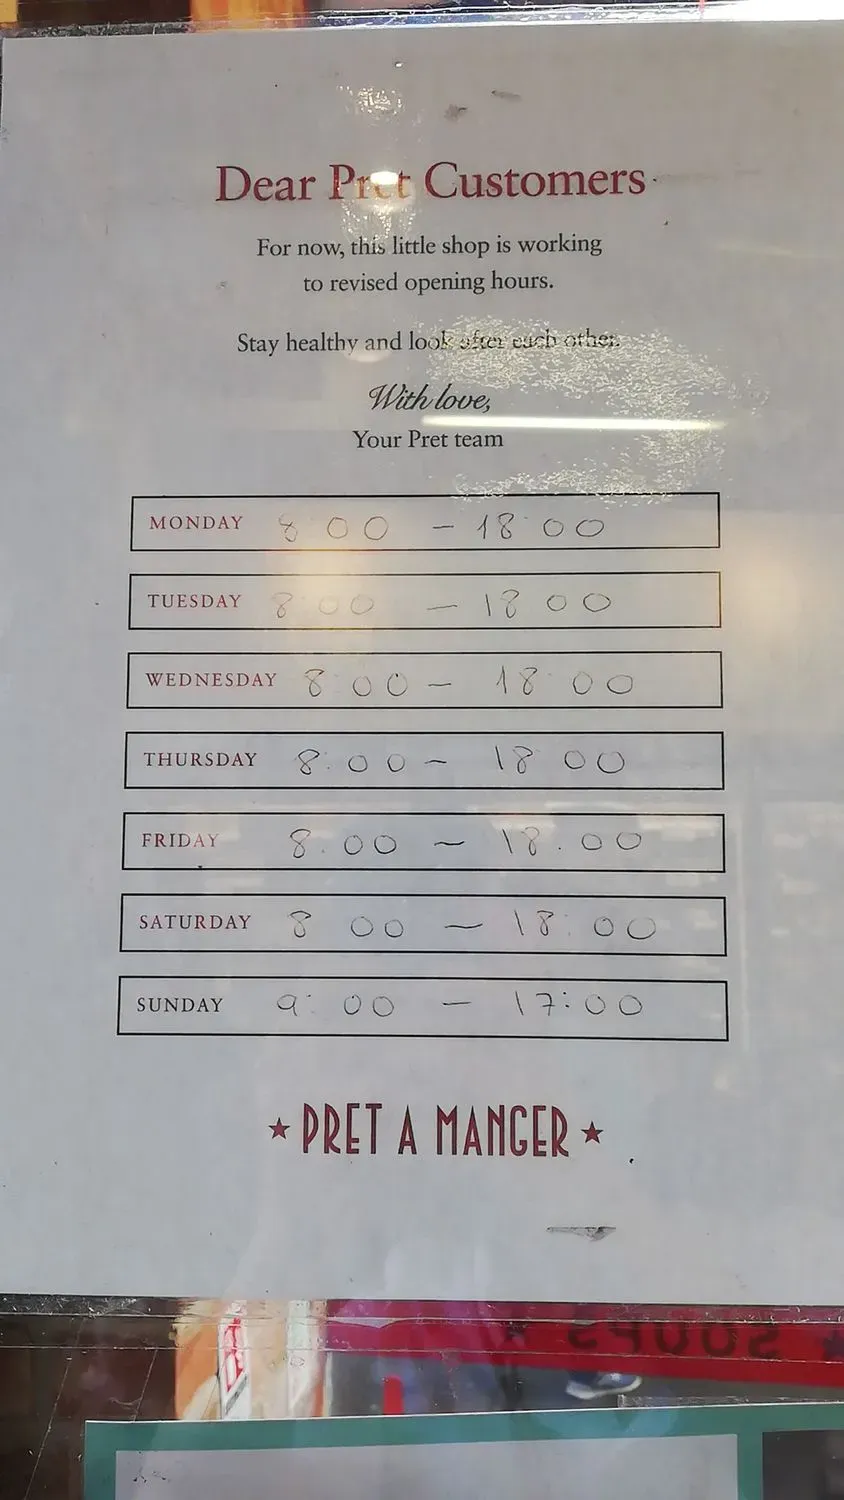 Dear Pret Customers
For now, this little shop is working
to revised opening hours.
Stay healthy and look after each other.
With love,
Your Pret team
MONDAY 8 00 - 18 00
TUESDAY 8 00 - 18 00
WEDNESDAY 8 00 - 18 00
THURSDAY 8. 00 - 18 00
FRIDAY 8. 00 - 18. 00
SATURDAY 8 00 - 18: 00
SUNDAY 9: 00 - 17:00
★ PRET A MANGER ★
SOUPS